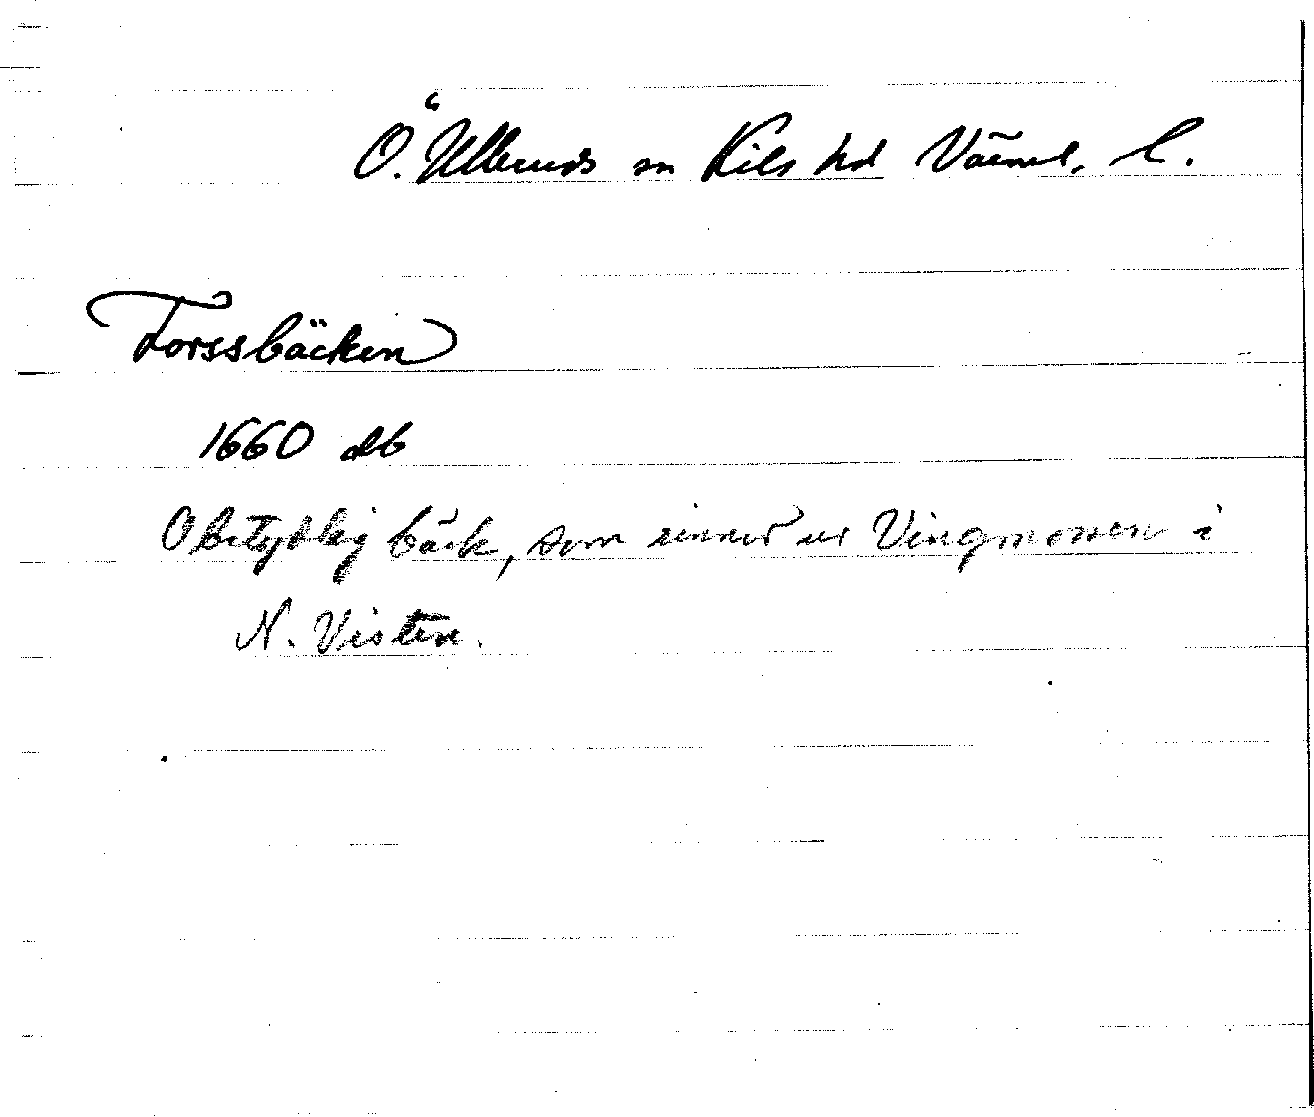 Ö. Ulleruds sn Kils hd Värml. l.
Forssbäcken
1660 db
Obetydlig bäck, som rinner ur Vingmossen i
N. Visten.